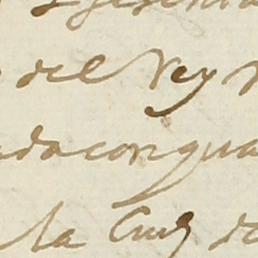 del Rey n
adaconqua
la Cruz de